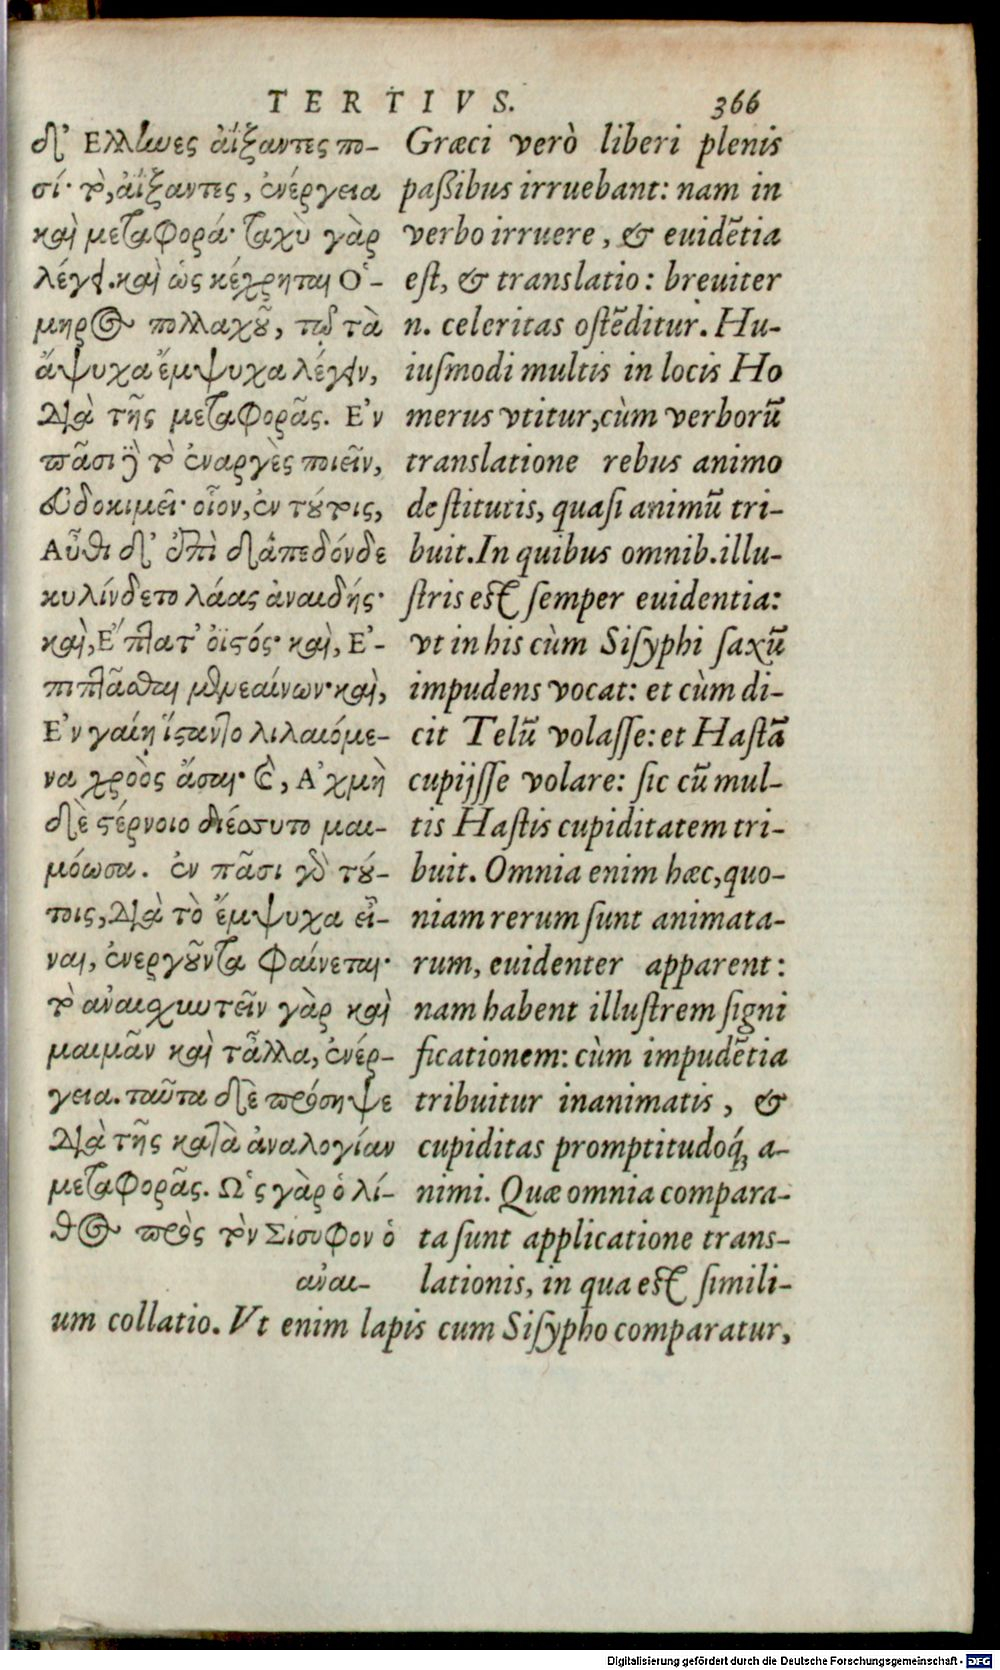 TERTIVS. 366
δ' Ελλωες ἀΐξαντες πο-
σί· τὸ, ἀΐξαντες, ἐνέργεια
καὶ μεταφορά· ταχὺ γὰρ
λέγει. καὶ ὡς κέχρηται Ὅ-
μηρος πολλαχοῦ, τῷ τὰ
ἄψυχα ἔμψυχα λέγειν,
διὰ τῆς μεταφορᾶς. Ἐν
πᾶσι δὲ τὸ ἐναργὲς ποιεῖν,
εὐδοκιμεῖ· οἷον, ἐν τούτοις,
Αὖθι δ' ἐπὶ δάπεδόνδε
κυλίνδετο λάας ἀναιδής·
καὶ, Ἔπτατ' ὀϊστός· καὶ, Ἐ-
πιπτᾶσθαι μενεαίνων· καὶ,
Ἐν γαίῃ ἵσταντο λιλαιόμε-
να χροὸς ἄσαι· καὶ, Αἰχμὴ
δὲ στέρνοιο διέσσυτο μαι-
μόωσα. ἐν πᾶσι γὰρ τού-
τοις, διὰ τὸ ἔμψυχα εἶ-
ναι, ἐνεργοῦντα φαίνεται·
τὸ ἀναισχυντεῖν γὰρ καὶ
μαιμᾶν καὶ τἆλλα, ἐνέρ-
γεια. ταῦτα δὲ προσῆψε
διὰ τῆς κατὰ ἀναλογίαν
μεταφορᾶς. Ὡς γὰρ ὁ λί-
θος πρὸς τὸν Σίσυφον ὁ
ἀναι-
Græci verò liberi plenis
paßibus irruebant: nam in
verbo irruere, & euidẽtia
est, & translatio: breuiter
n. celeritas ostẽditur. Hu-
iusmodi multis in locis Ho
merus vtitur, cùm verborũ
translatione rebus animo
destitutis, quasi animũ tri-
buit. In quibus omnib. illu-
stris est semper euidentia:
vt in his cùm Sisyphi saxũ
impudens vocat: et cùm di-
cit Telũ volasse: et Hastã
cupijsse volare: sic cũ mul-
tis Hastis cupiditatem tri-
buit. Omnia enim hæc, quo-
niam rerum sunt animata-
rum, euidenter apparent:
nam habent illustrem signi
ficationem: cùm impudẽtia
tribuitur inanimatis, &
cupiditas promptitudoq́; a-
nimi. Quæ omnia compara-
ta sunt applicatione trans-
lationis, in qua est simili-
um collatio. Vt enim lapis cum Sisypho comparatur,
Digitalisierung gefördert durch die Deutsche Forschungsgemeinschaft - DFG